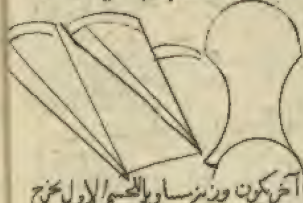 آخر يكون وزنه مساويا للجسم الاول نخرج